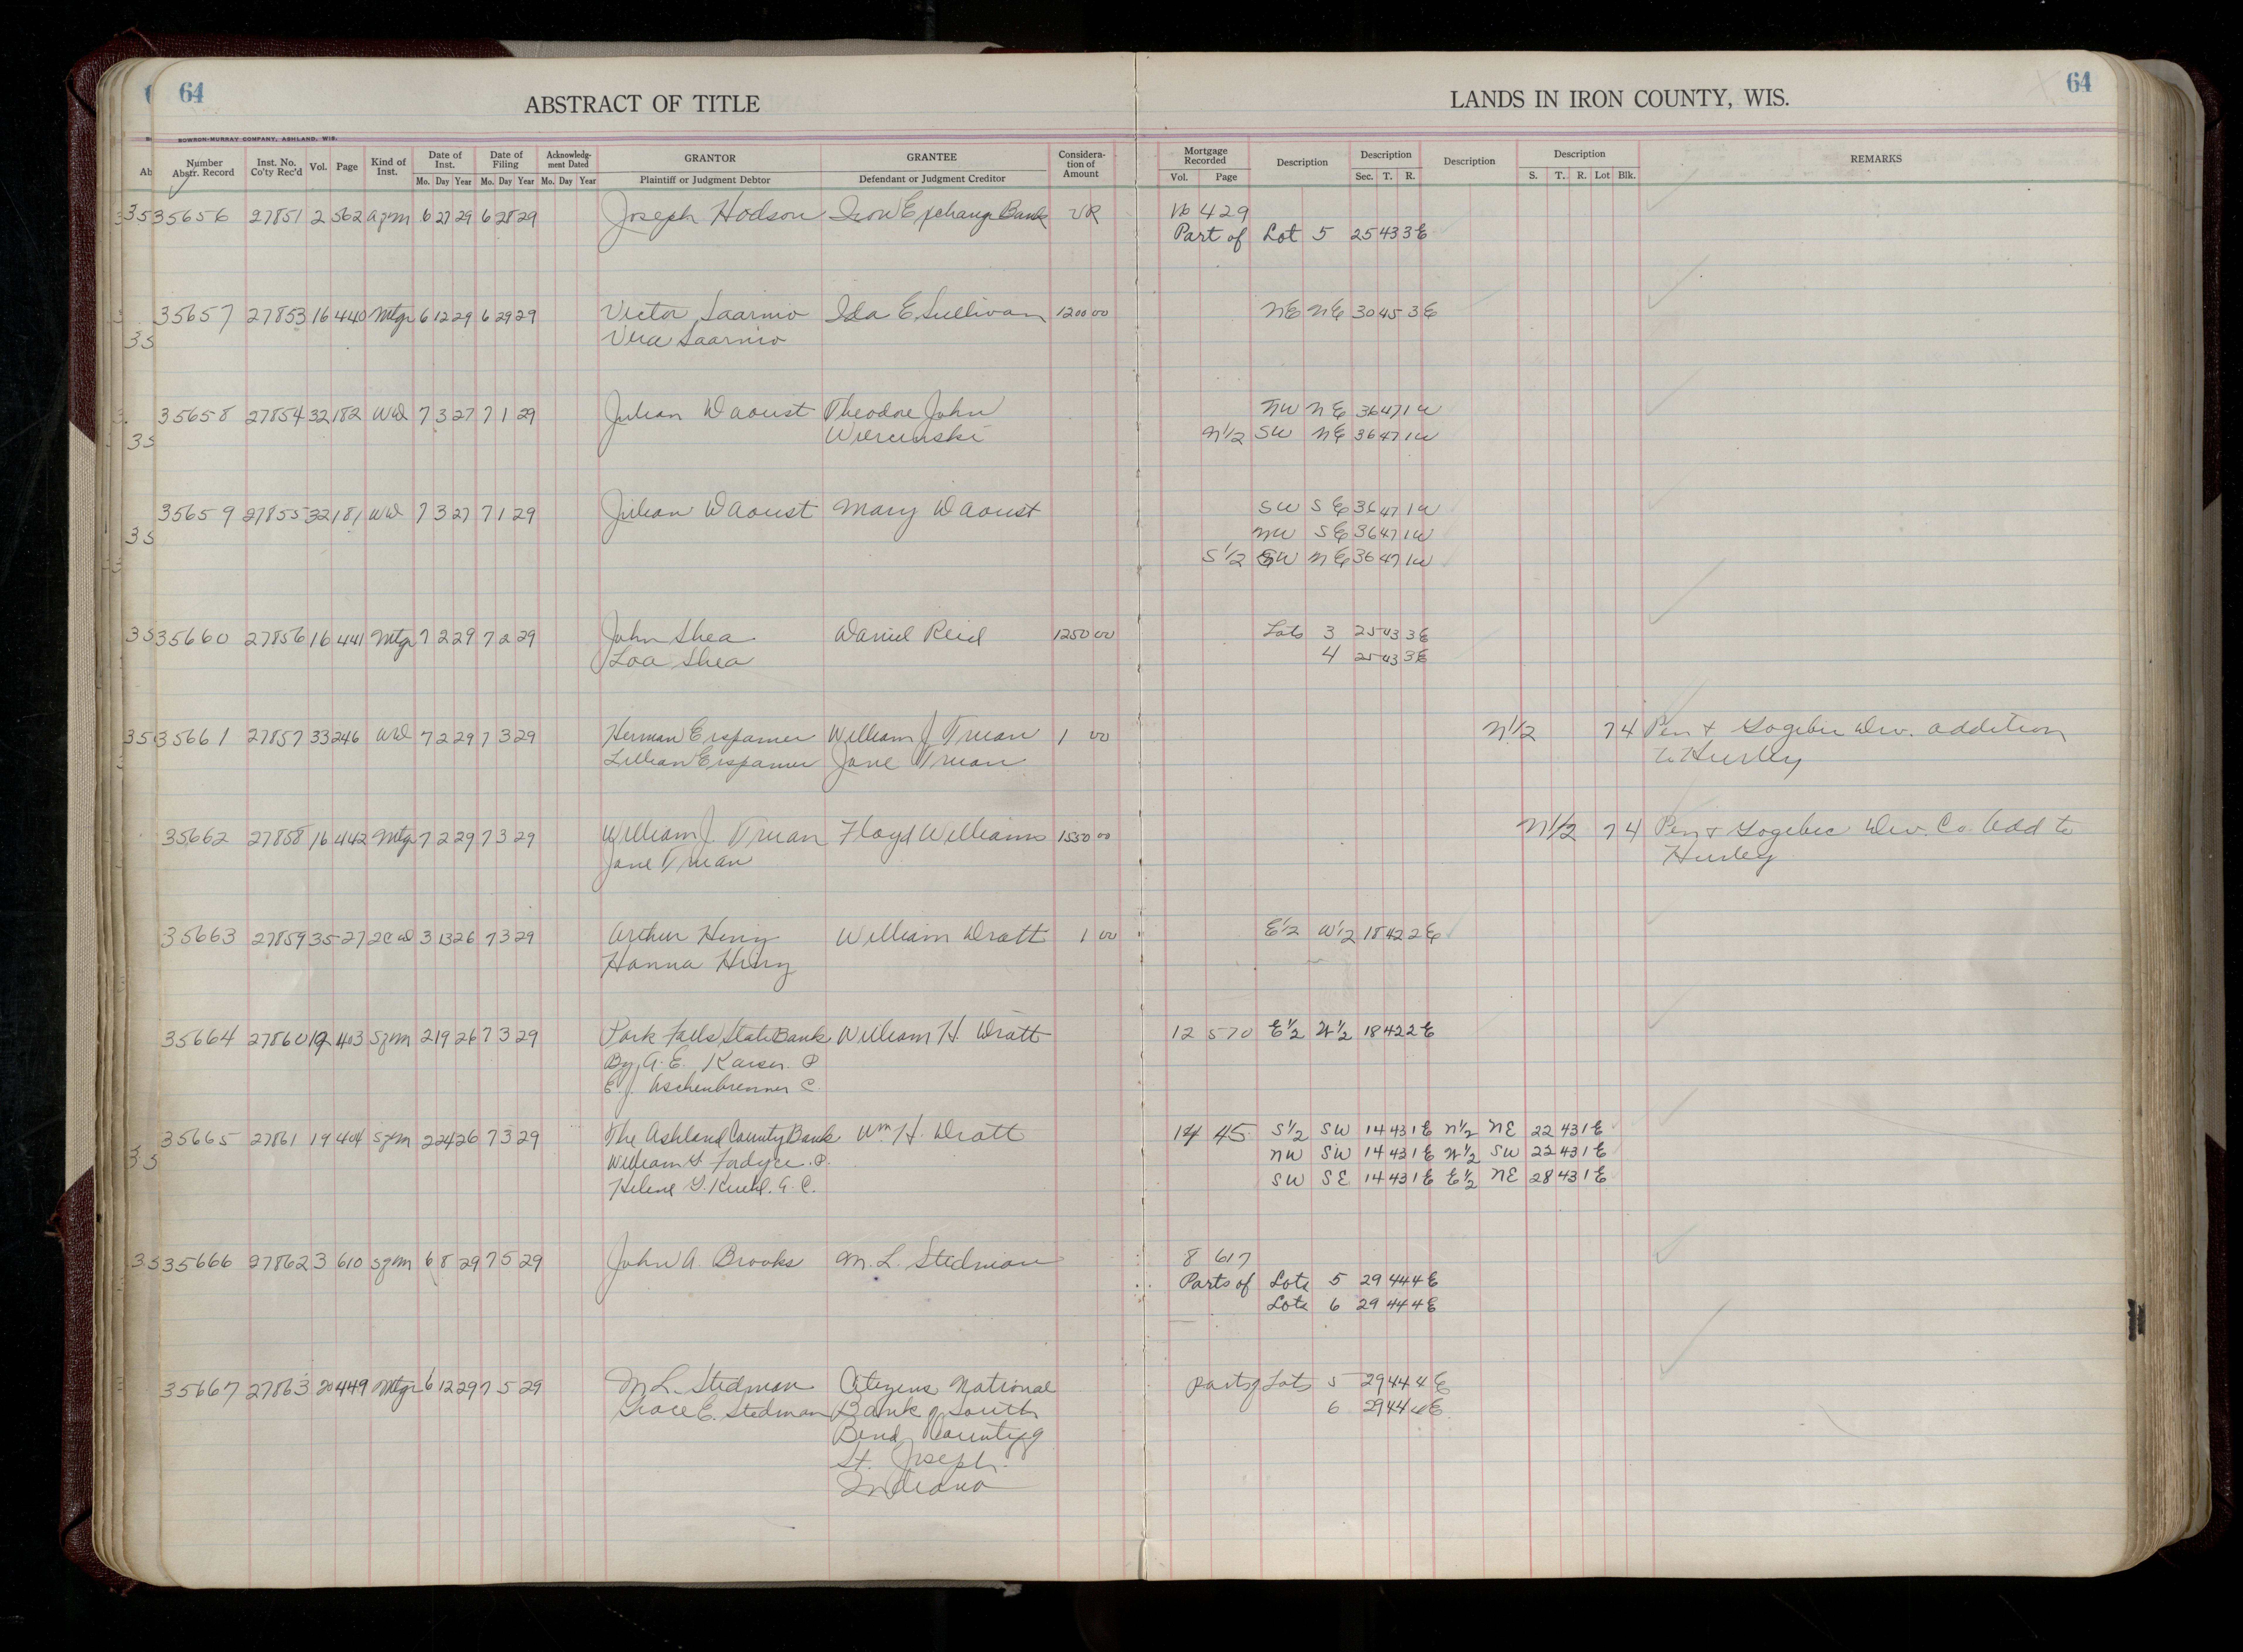 64
ABSTRACT OF TITLE
LANDS IN IRON COUNTY, WIS.
64
BOWRON-MURRAY COMPANY, ASHLAND, WIS.
Number Abstr. Record Inst. No. Co'ty Rec'd Vol. Page Kind of Inst. Date of Inst. Mo. Day Year Date of Filing Mo. Day Year Acknowledg-ment Dated Mo. Day Year GRANTOR Plaintiff or Judgment Debtor GRANTEE Defendant or Judgment Creditor Considera-tion of Amount Mortgage Recorded Vol. Page Description Description Sec. T. R. Description Description S. T. R. Lot Blk. REMARKS
35656 27851 2 562 agm 6 27 29 6 28 29 Joseph Hodson Iron Exchange Bank VR 16 429
Part of Lot 5 25 43 3E
35657 27853 16 440 Mtge 6 12 29 6 29 29 Victor Saarnio Ida E Sullivan 1200 00 NE NE 30 45 3E
Saarnio
35658 27854 32 182 WD 7 3 27 7 1 29 Julian Daoust Theodore John NW NE 36 47 1W
N1/2 SW NE 36 47 1W
35659 27855 32 181 WD 7 3 27 7 1 29 Julian Daoust Mary Daoust SW SE 36 47 1W
NW SE 36 47 1W
S1/2 SW NE 36 47 1W
35660 27856 16 441 Mtge 7 2 29 7 2 29 John Shea Daniel Reid 1250 00 Lots 3 25 43 3E
Loa Shea 4 25 43 3E
35661 27857 33 246 WD 7 2 29 7 3 29 Herman Erspamer William J Truan 1 00 N1/2 7 4 Pen & Gogebic Dev. addition
Lillian Erspamer Jane Truan to Hurley
35662 27858 16 442 Mtge 7 2 29 7 3 29 William J. Truan Floyd Williams 1550 00 N1/2 7 4 Pen & Gogebec Dev. Co. Add to
Jane Truan Hurley
35663 27859 35 27 2CD 3 13 26 7 3 29 Arthur William Dratt 1 00 E1/2 W1/2 18 42 2E
Hanna
35664 27860 19 403 Sgm 2 19 26 7 3 29 Park Falls State Bank William H. Dratt 12 570 E1/2 W1/2 18 42 2E
By A. E. Kaiser. P
E. J. Aschenbrenner C.
35665 27861 19 404 Sgm 2 24 26 7 3 29 The Ashland County Bank Wm H. Dratt 14 45 S1/2 SW 14 43 1E N1/2 NE 22 43 1E
William G. Fordyce. P. NW SW 14 43 1E W1/2 SW 22 43 1E
Helene G. Kuehl. A. C. SW SE 14 43 1E E1/2 NE 28 43 1E
35666 27862 3 610 Sgm 6 8 29 7 5 29 John A. Brooks M. L. Stedman 8 617
Parts of Lots 5 29 44 4E
Lots 6 29 44 4E
35667 27863 20 449 Mtge 6 12 29 7 5 29 M L. Stedman Citizens National parts of Lots 5 29 44 4E
Grace E. Stedman Bank of South 6 29 44 4E
Bend County of
St. Joseph
Indiana